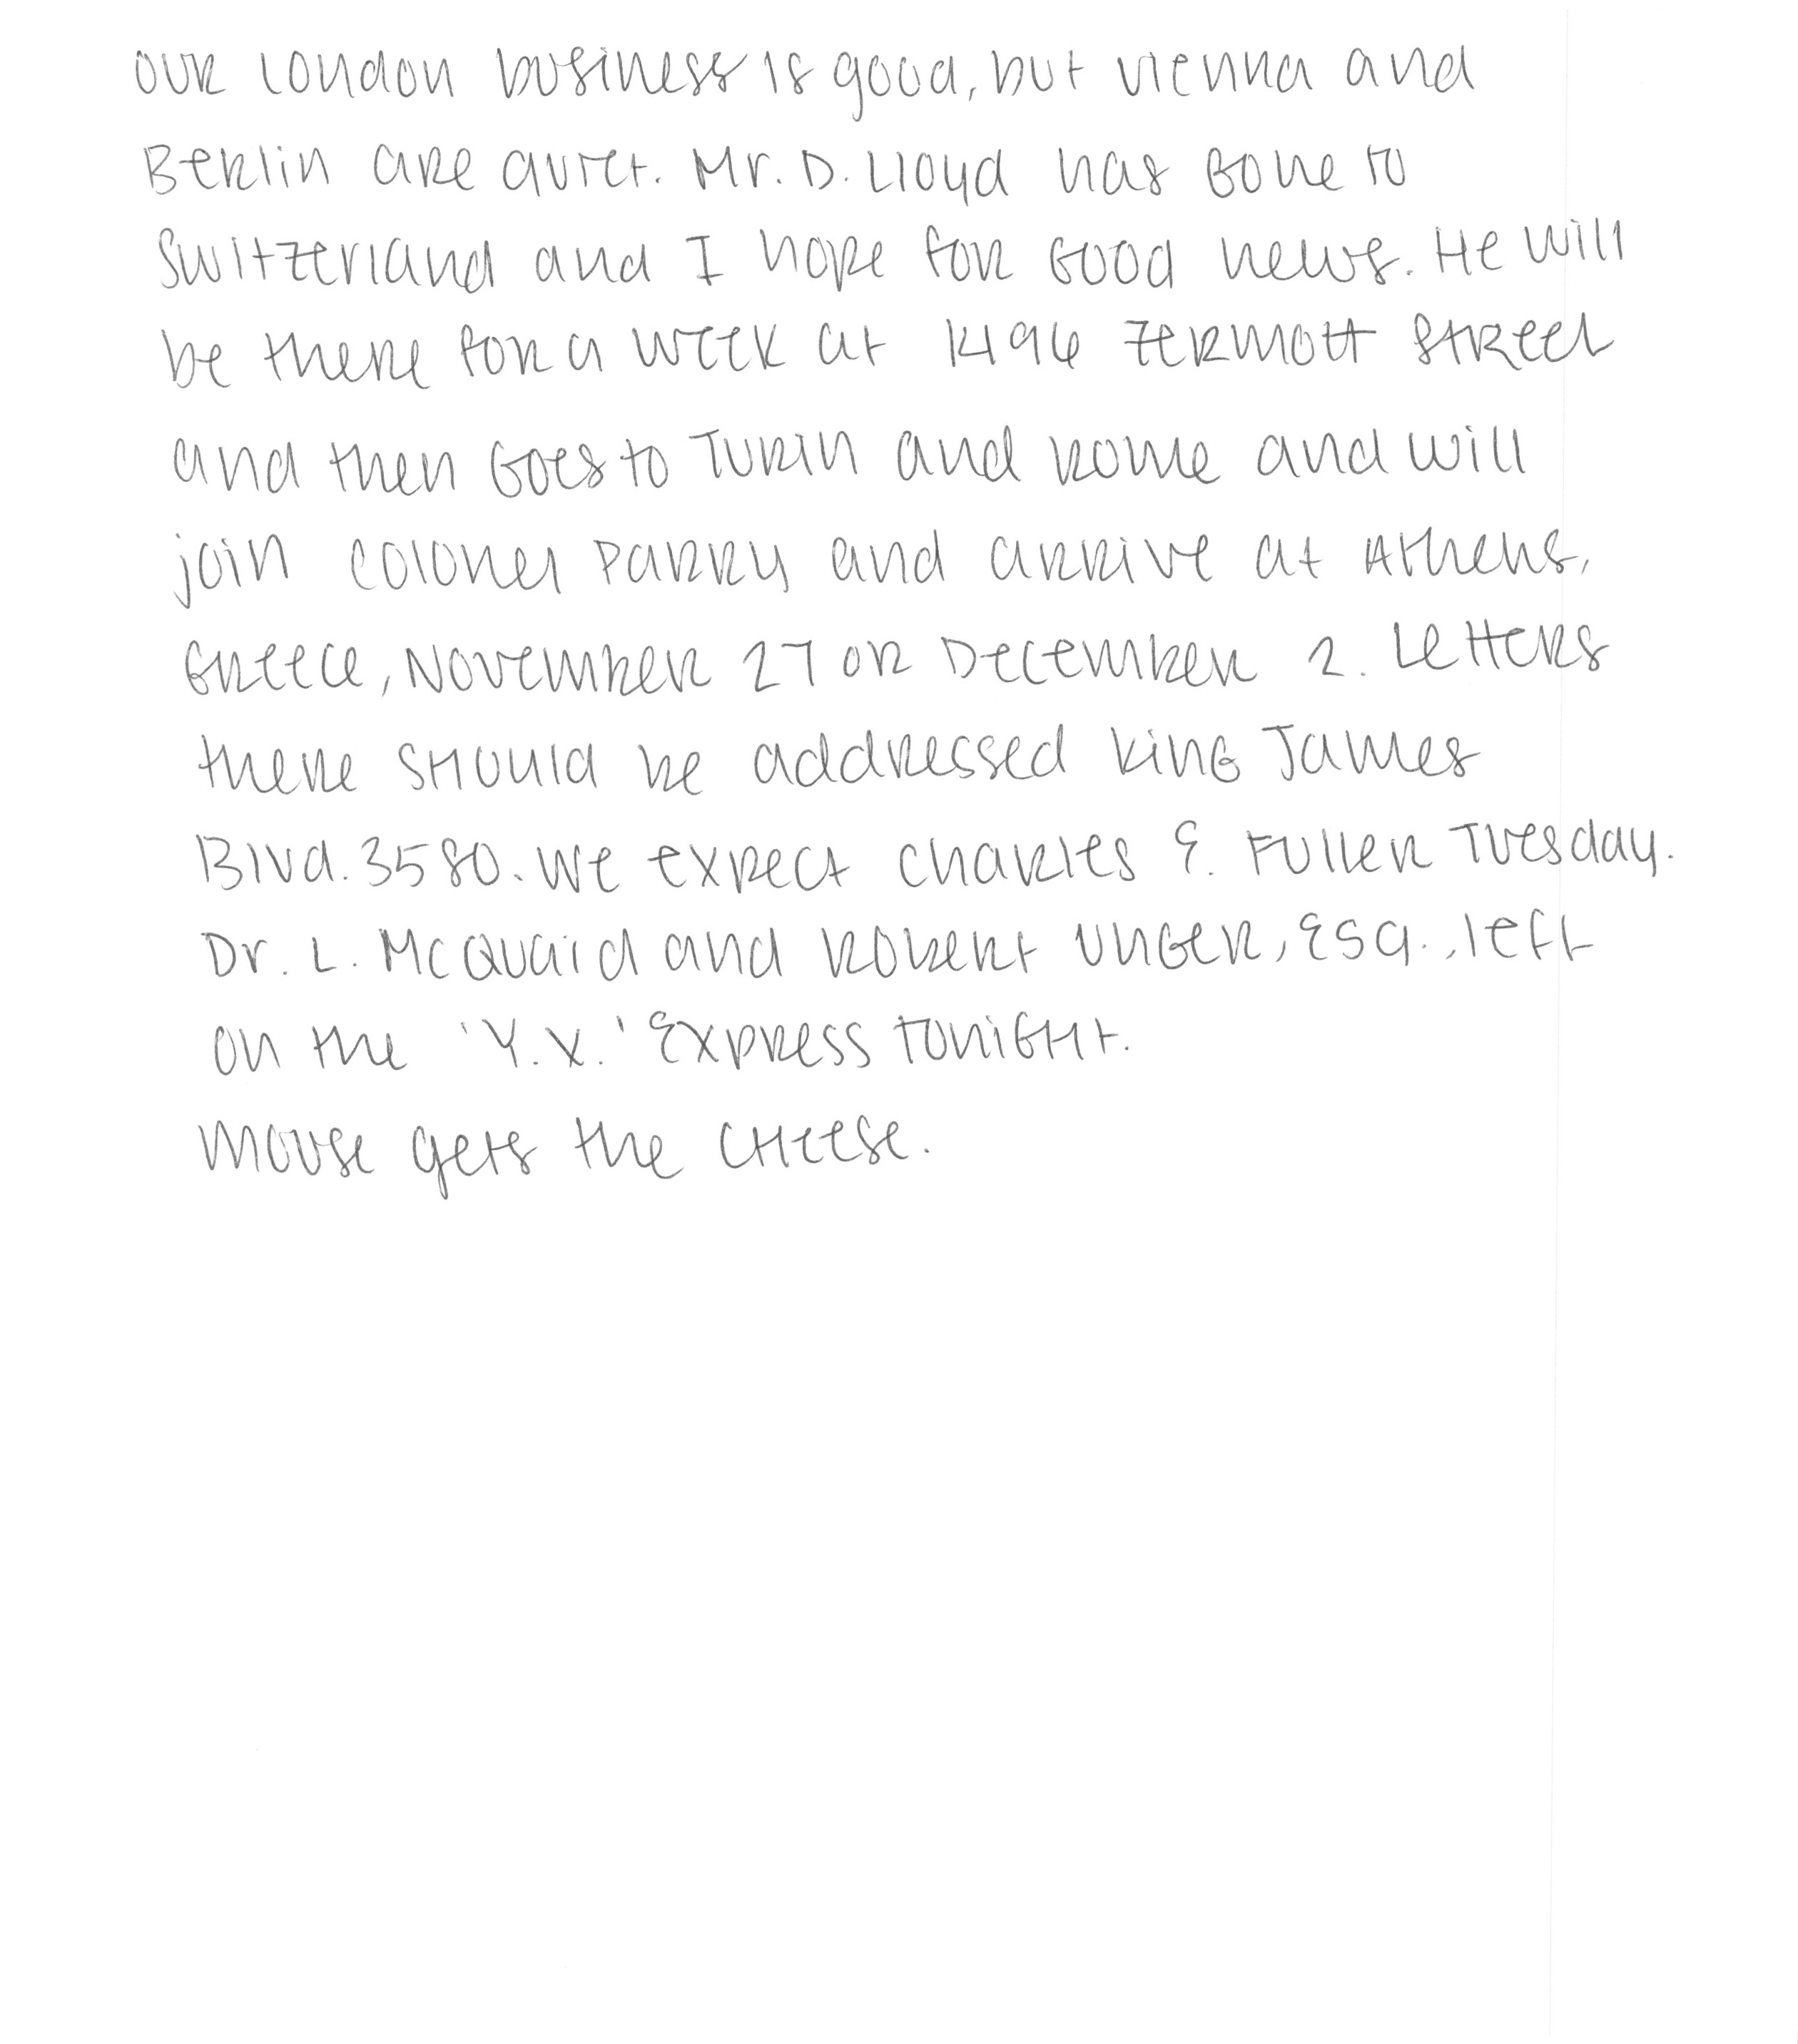 our London business is good, but Vienna and
Berlin are quiet. Mr. D. Lloyd has gone to
Switzerland and I hope for good news. He will
be there for a week at 1496 Zermott Street
and then goes to Turin and Rome and will
join Colonel Parry and arrive at Athens,
Greece, November 27 or December 2. Letters
there should be addressed King James
Blvd. 3580. We expect Charles E. Fuller Tuesday.
Dr. L. McQuaid and Robert Unger, Esq., left
on the 'Y.X.' Express tonight.
mouse gets the cheese.